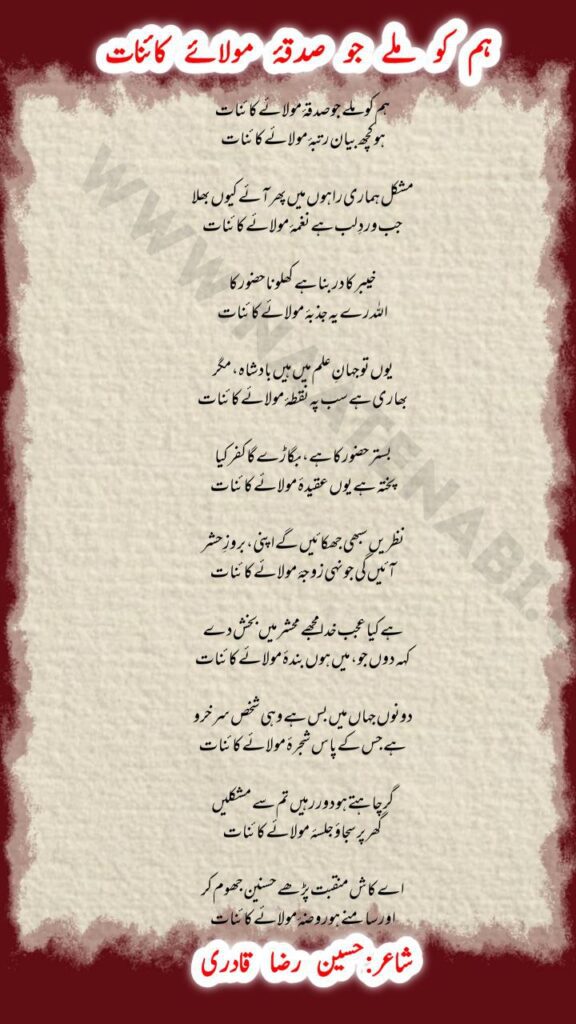 ہم کو ملے جو صدقۂ مولائے کائنات
ہم کو ملے جو صدقۂ مولائے کائنات
ہو کچھ بیان رتبۂ مولائے کائنات
مشکل ہماری راہوں میں پھر آئے کیوں بھلا
جب وردِ لب ہے نغمۂ مولائے کائنات
خیبر کا در بنا ہے کھلونا حضور کا
اللہ رے یہ جذبۂ مولائے کائنات
یوں تو جہانِ علم میں ہیں بادشاہ، مگر
بھاری ہے سب پہ نقطۂ مولائے کائنات
بستر حضور کا ہے، بگاڑے گا کفر کیا
پختہ ہے یوں عقیدۂ مولائے کائنات
نظریں سبھی جھکائیں گے اپنی، بروزِ حشر
آئیں گی جونہی زوجۂ مولائے کائنات
ہے کیا عجب خدا مجھے محشر میں بخش دے
کہہ دوں جو، میں ہوں بندۂ مولائے کائنات
دونوں جہاں میں بس ہے وہی شخص سرخرو
ہے جس کے پاس شجرۂ مولائے کائنات
گر چاہتے ہو دور رہیں تم سے مشکلیں
گھر پر سجاؤ جلسۂ مولائے کائنات
اے کاش منقبت پڑھے حسنین جھوم کر
اور سامنے ہو روضۂ مولائے کائنات
شاعر: حسین رضا قادری
WWW.NAATENABI.